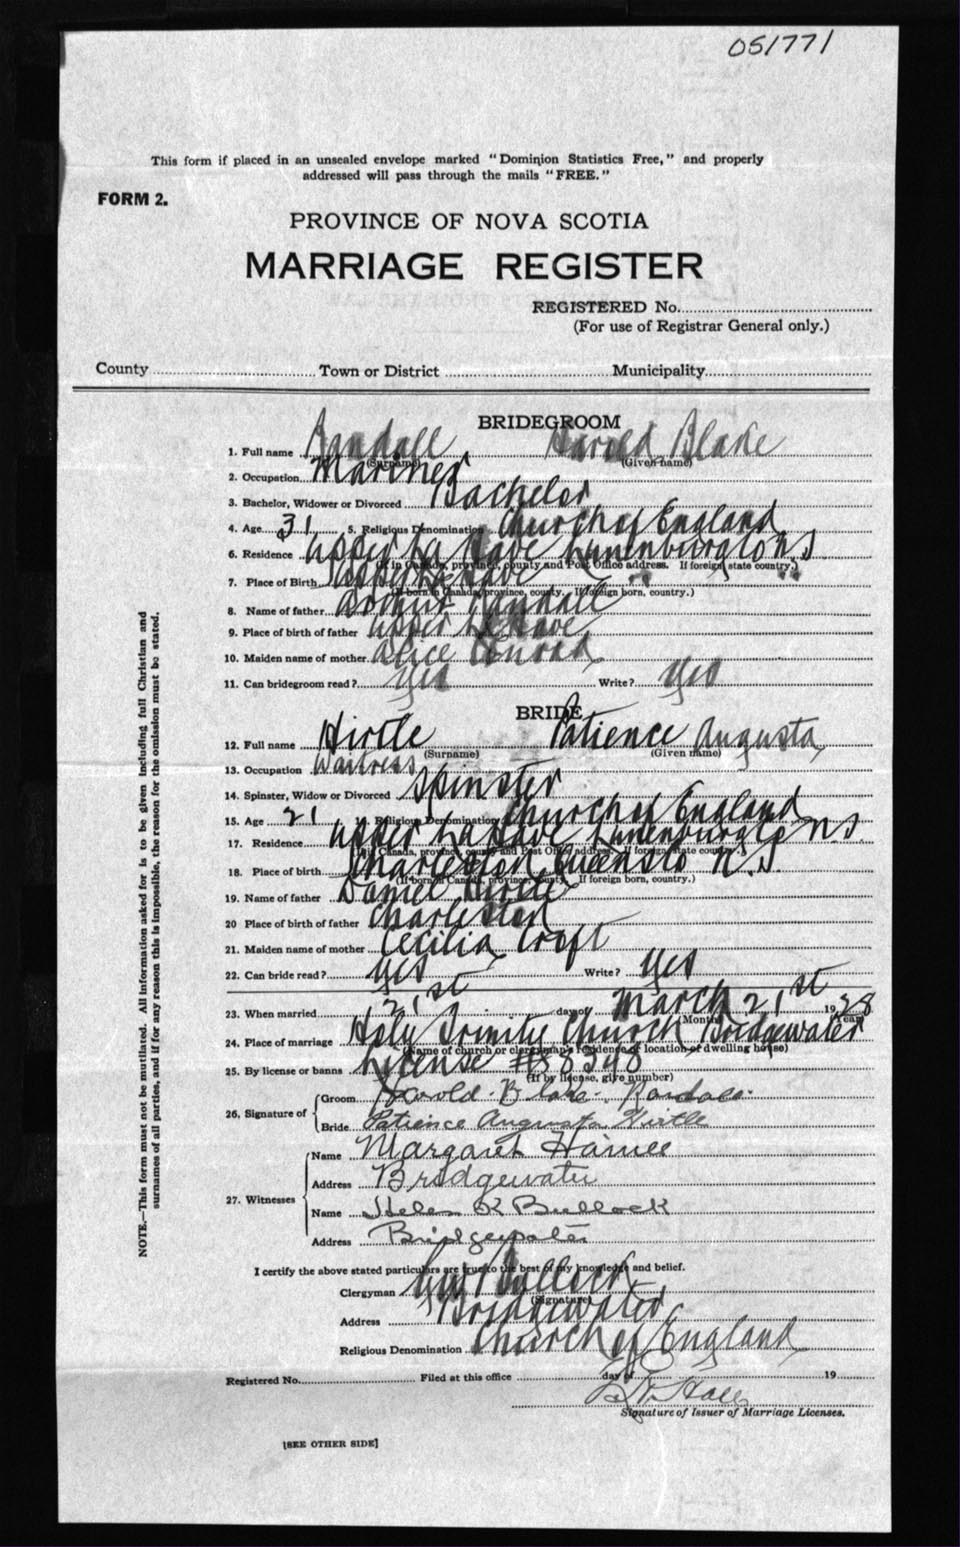 051771
This form if placed in an unsealed envelope marked "Dominion Statistics Free," and properly
addressed will pass through the mails "FREE."
FORM 2.
PROVINCE OF NOVA SCOTIA
MARRIAGE REGISTER
REGISTERED No.
(For use of Registrar General only.)
County Town or District Municipality
BRIDEGROOM
1. Full name Randall Harold Blake
(Surname) (Given name)
2. Occupation Mariner
3. Bachelor, Widower or Divorced Bachelor
4. Age 31 5. Religious Denomination Church of England
6. Residence Upper La Have Lunenburg Co N.S
(If in Canada, province, county and Post Office address. If foreign, state country.)
7. Place of Birth Upper La Have
(If born in Canada, province, county. If foreign born, country.)
8. Name of father Randall
9. Place of birth of father Upper La Have
10. Maiden name of mother Alice Conrad
11. Can bridegroom read? Yes Write? Yes
BRIDE
12. Full name Hirtle Patience Augusta
(Surname) (Given name)
13. Occupation Waitress
14. Spinster, Widow or Divorced Spinster
15. Age 21 16. Religious Denomination Church of England
17. Residence Upper La Have Lunenburg Co N.S.
(If in Canada, province, county and Post Office address. If foreign state country.)
18. Place of birth Charleston Queens Co N.S.
(If born in Canada, province, county. If foreign born, country.)
19. Name of father Daniel Hirtle
20 Place of birth of father Charleston
21. Maiden name of mother Cecilia Croft
22. Can bride read? Yes Write? Yes
23. When married 21st day of March 21st 1928
(Month) (Year)
24. Place of marriage Holy Trinity Church Bridgewater
(Name of church or clergyman's residence of location of dwelling house)
25. By license or banns License #58598
(If by license, give number)
26. Signature of Groom Harold Blake Randall
Bride Patience Augusta Hirtle
27. Witnesses Name Margaret
Address Bridgewater
Name Helen R Bullock
Address Bridgewater
I certify the above stated particulars are true to the best of my knowledge and belief.
Clergyman Bullock
(Signature)
Address Bridgewater
Religious Denomination Church of England
Registered No. Filed at this office day of 19
Signature of Issuer of Marriage Licenses.
[SEE OTHER SIDE]
NOTE.—This form must not be mutilated. All information asked for is to be given including full Christian and
surnames of all parties, and if for any reason this is impossible, the reason for the omission must be stated.